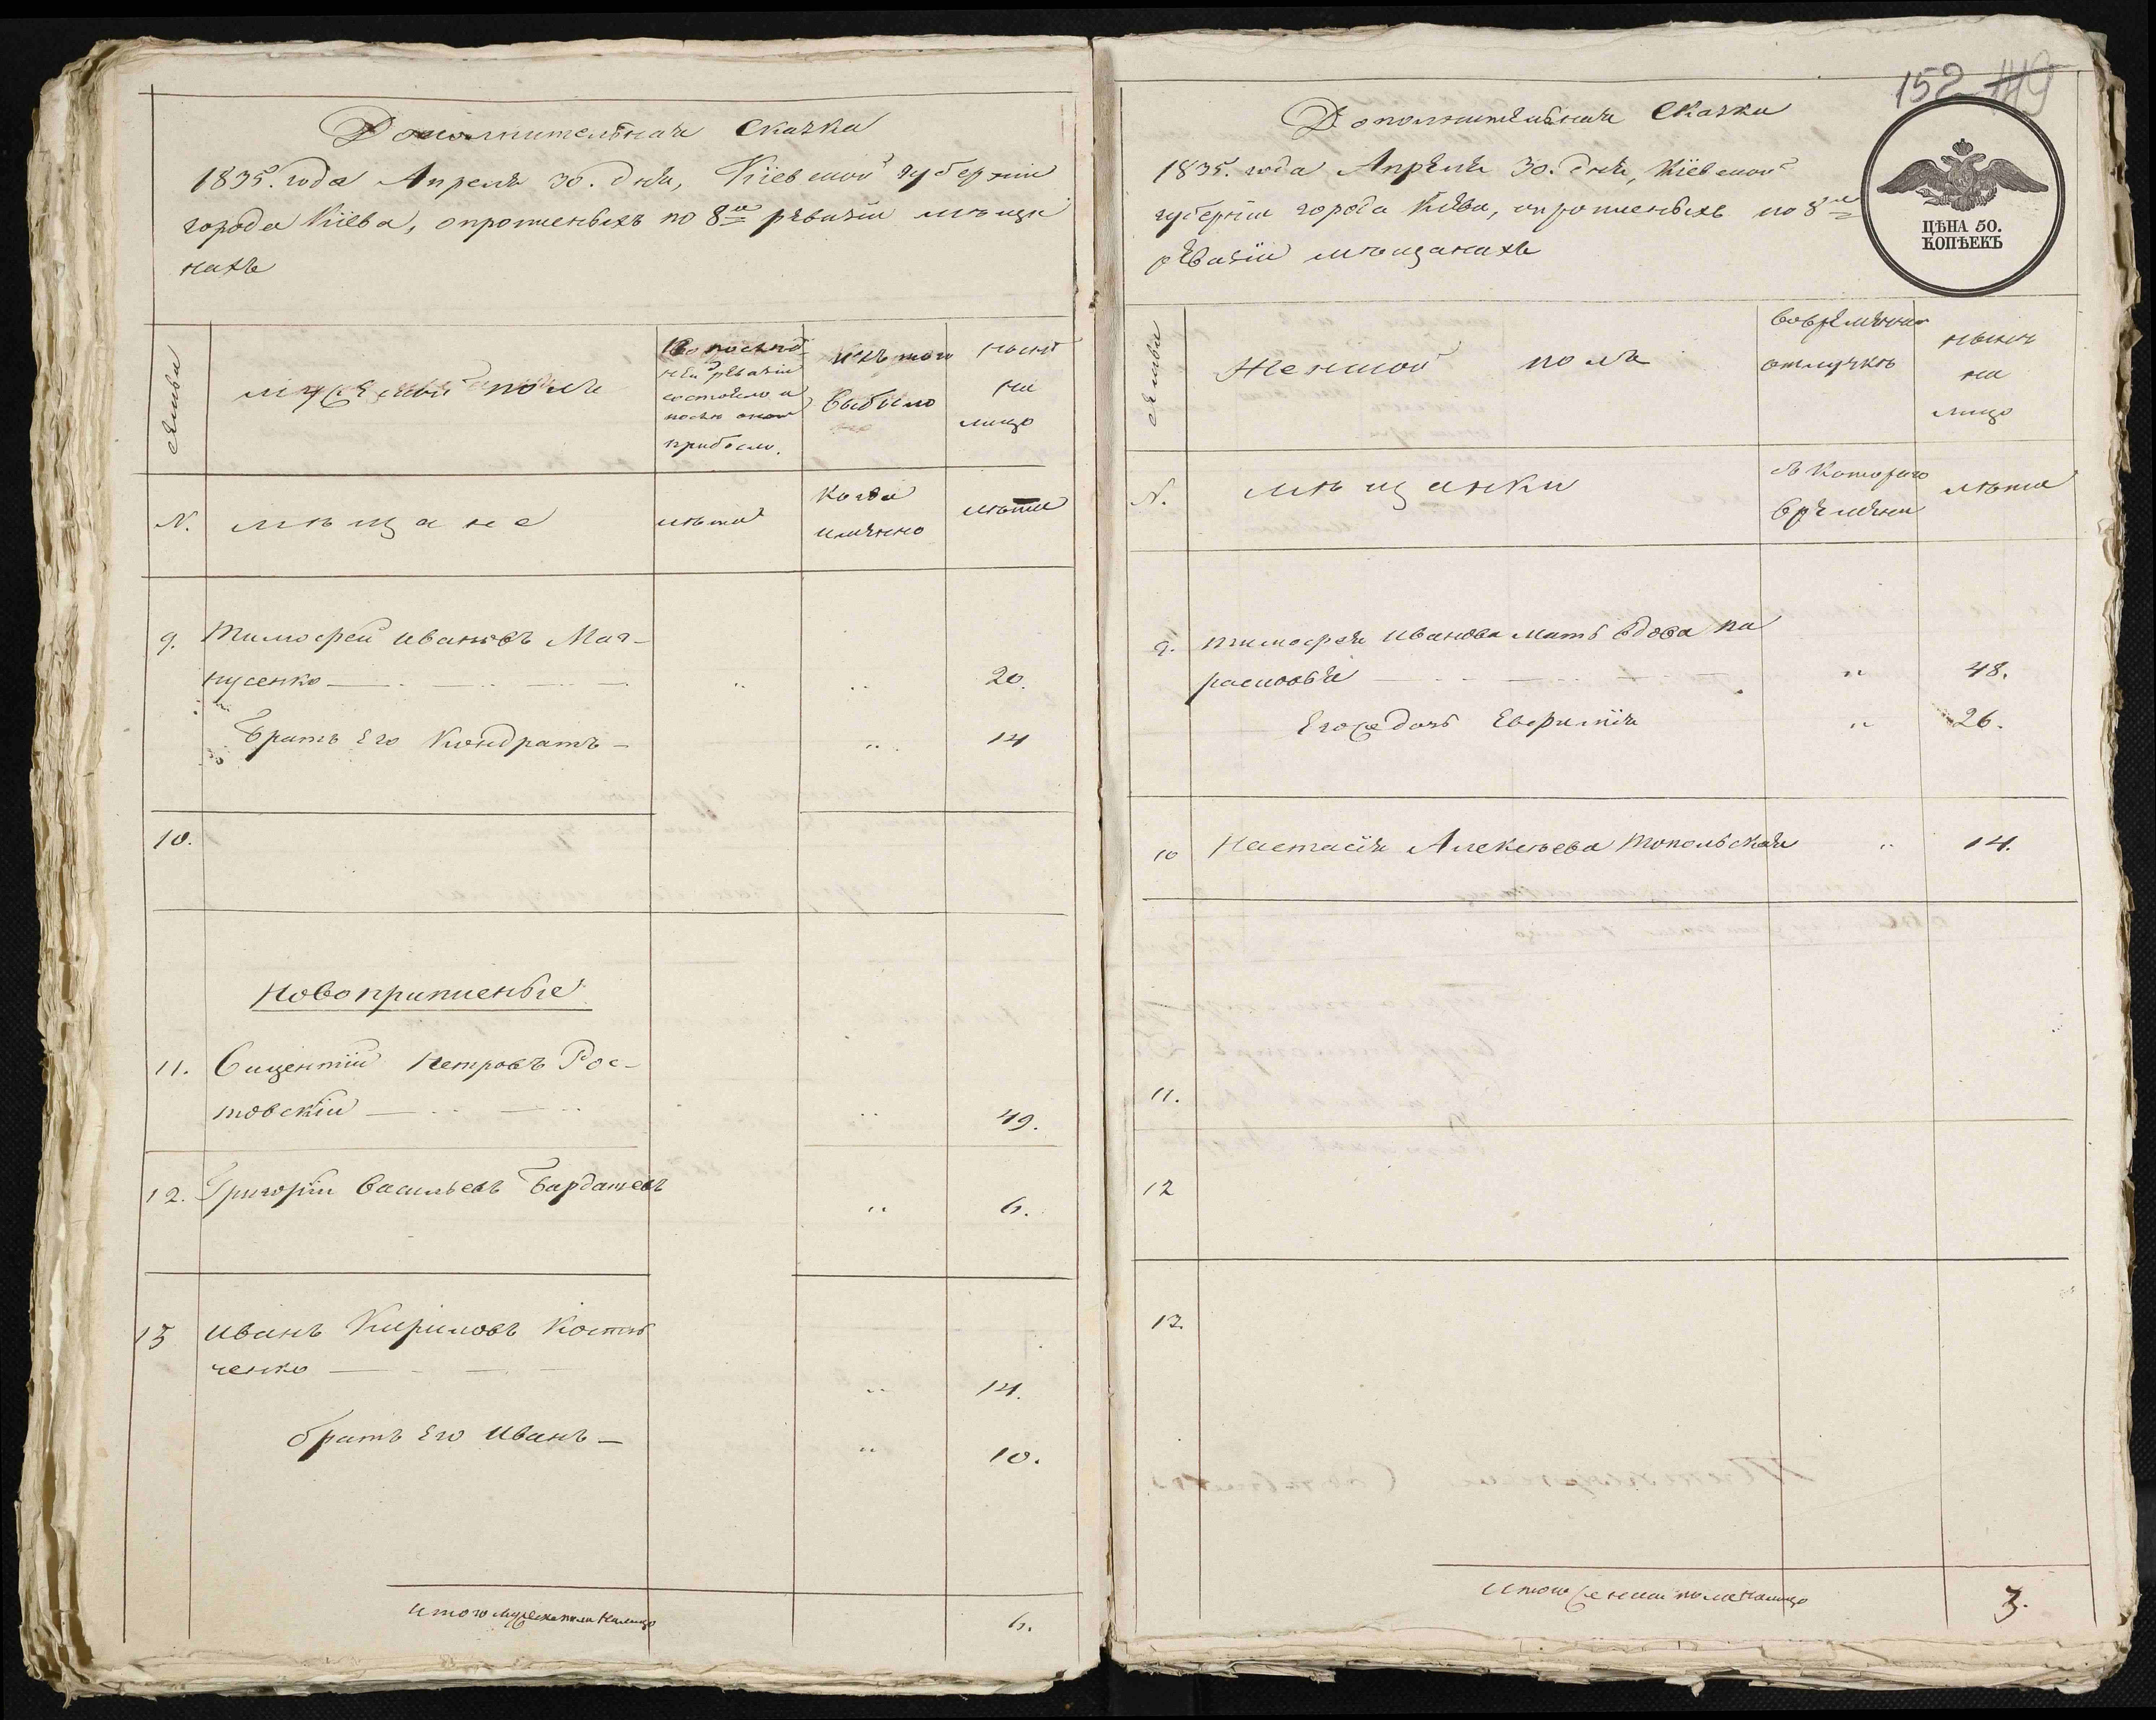 Дополнительная Сказка
1835. года Апреля 30. дня, Кіевской губерніи
города Кіева, опропшеныхъ по 8й ревизіи мѣща
нахъ
Семьи
мужескій полъ
Въ послѣд
ней ревизіи
состояло и
послѣ оной
прибыло.
Изъ того
выбыло
нынѣ
на
лицо
N.
мѣщане
лѣта
Когда
имянно
лѣта
9.
Тимофей Ивановъ Мат-
нусенко
..
..
20.
Братъ Его Кондратъ
..
14
10.
Новоприписныe
11.
Вицентій Петровъ Рос-
товскій
..
49.
12.
Григорій Васильевъ Бардашевъ
..
6.
13
Иванъ Кириловъ Костю
ченко
..
14.
братъ Его Иванъ
..
10.
Итого мужеска пола налицо
6.
152 119
ЦѢНА 50.
КОПѢЕКЪ
Дополнительная Сказка
1835. года Апреля 30. дня, Кіевской
губерніи города Кіева, опропшеныхъ по 8й
ревизіи мѣщанахъ
Семьи
Женской полъ
Вовременной
отлучкѣ
нынѣ
на
лицо
N.
мѣщанки
съ Котораго
времени
лѣта
9.
Тимофея Иванова мать вдова Па
расковія
..
48.
Егожъ дочь Евфимія
..
26.
10
Настасія Алексѣева Топольская
..
14.
11.
12
13.
Итого женска пола налицо
3.